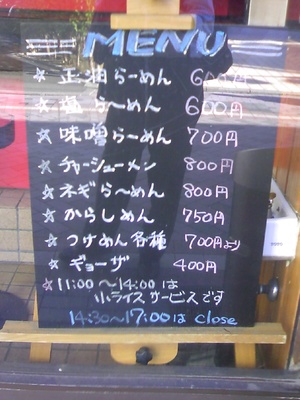 MENU
☆ 正油らーめん 600円
☆ 塩らーめん 600円
☆ 味噌らーめん 700円
☆ チャーシューメン 800円
☆ ネギらーめん 800円
☆ からしめん 750円
☆ つけめん各種 700円より
☆ ギョーザ 400円
☆11:00〜14:00は
小ライスサービスです
14:30〜17:00は close